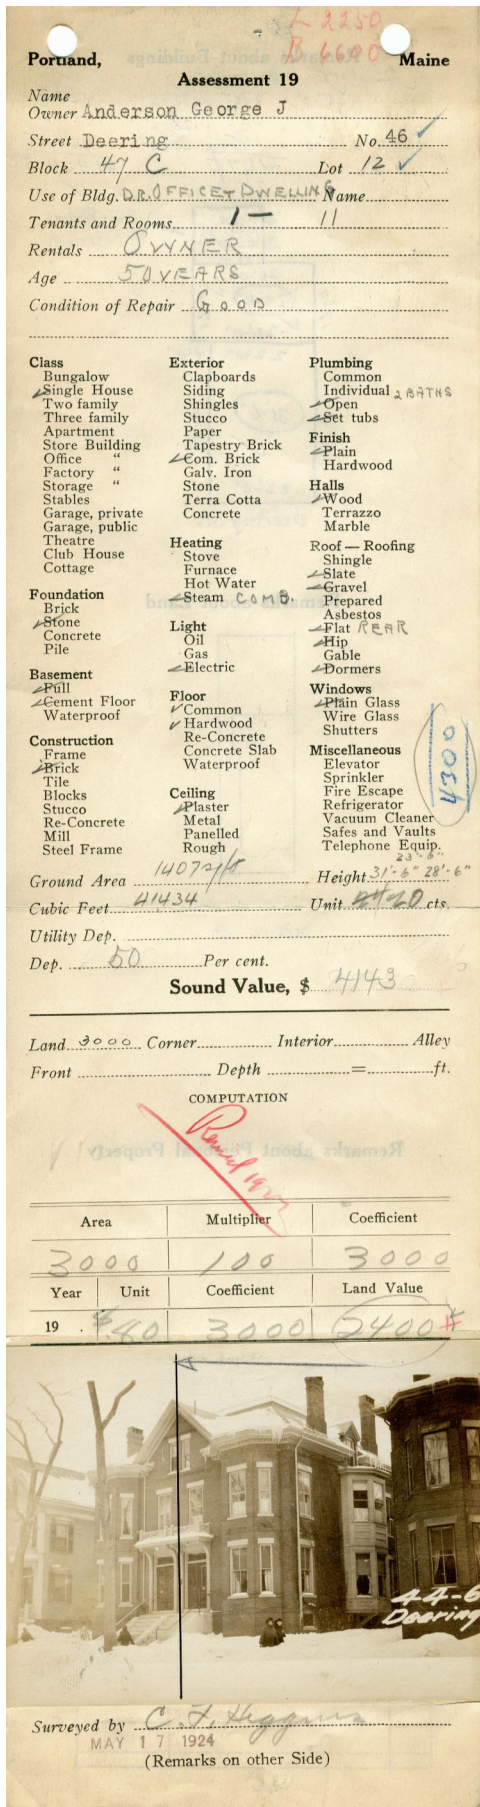 L 2250
B 6600
Portland, Maine
Assessment 19
Name
Owner Anderson George J
Street Deering No. 46
Block 47 C Lot 12
Use of Bldg. DR. OFFICE & DWELLING Name
Tenants and Rooms 1 — 11
Rentals OWNER
Age 50 YEARS
Condition of Repair GOOD
Class
Bungalow
Single House
Two family
Three family
Apartment
Store Building
Office "
Factory "
Storage "
Stables
Garage, private
Garage, public
Theatre
Club House
Cottage
Foundation
Brick
Stone
Concrete
Pile
Basement
Full
Cement Floor
Waterproof
Construction
Frame
Brick
Tile
Blocks
Stucco
Re-Concrete
Mill
Steel Frame
Exterior
Clapboards
Siding
Shingles
Stucco
Paper
Tapestry Brick
Com. Brick
Galv. Iron
Stone
Terra Cotta
Concrete
Heating
Stove
Furnace
Hot Water
Steam COMB.
Light
Oil
Gas
Electric
Floor
Common
Hardwood
Re-Concrete
Concrete Slab
Waterproof
Ceiling
Plaster
Metal
Panelled
Rough
Plumbing
Common
Individual 2 BATHS
Open
Set tubs
Finish
Plain
Hardwood
Halls
Wood
Terrazzo
Marble
Roof — Roofing
Shingle
Slate
Gravel
Prepared
Asbestos
Flat REAR
Hip
Gable
Dormers
Windows
Plain Glass
Wire Glass
Shutters
Miscellaneous
Elevator
Sprinkler
Fire Escape
Refrigerator
Vacuum Cleaner
Safes and Vaults
Telephone Equip.
4300
23'-6"
Ground Area 1407 sq ft Height 31'-6" 28'-6"
Cubic Feet 41434 Unit 20 cts.
Utility Dep.
Dep. 50 Per cent.
Sound Value, $ 4143
Land 3000 Corner Interior Alley
Front Depth = ft.
COMPUTATION
Area Multiplier Coefficient
3000 100 3000
Year Unit Coefficient Land Value
19 $.80 3000 2400
44-6
Deering
Surveyed by C. F. Higgins
MAY 17 1924
(Remarks on other Side)